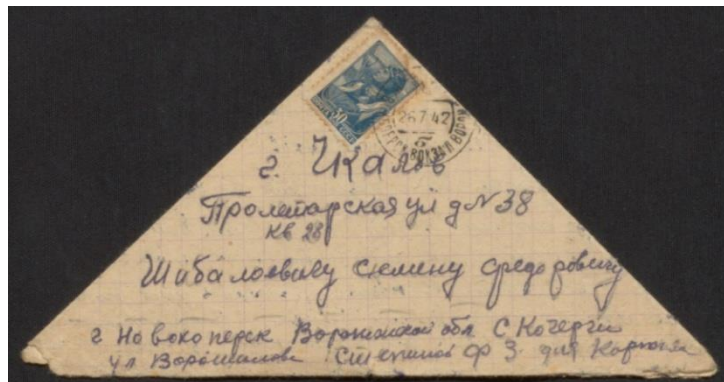 30
26.7.42
г Чкалов
Пролетарская ул д № 38
кв 28
Шибаловичу Семину Федоровичу
г Новохоперск Воронежской обл С Кочерги
ул Ворошилова Ф 3. для